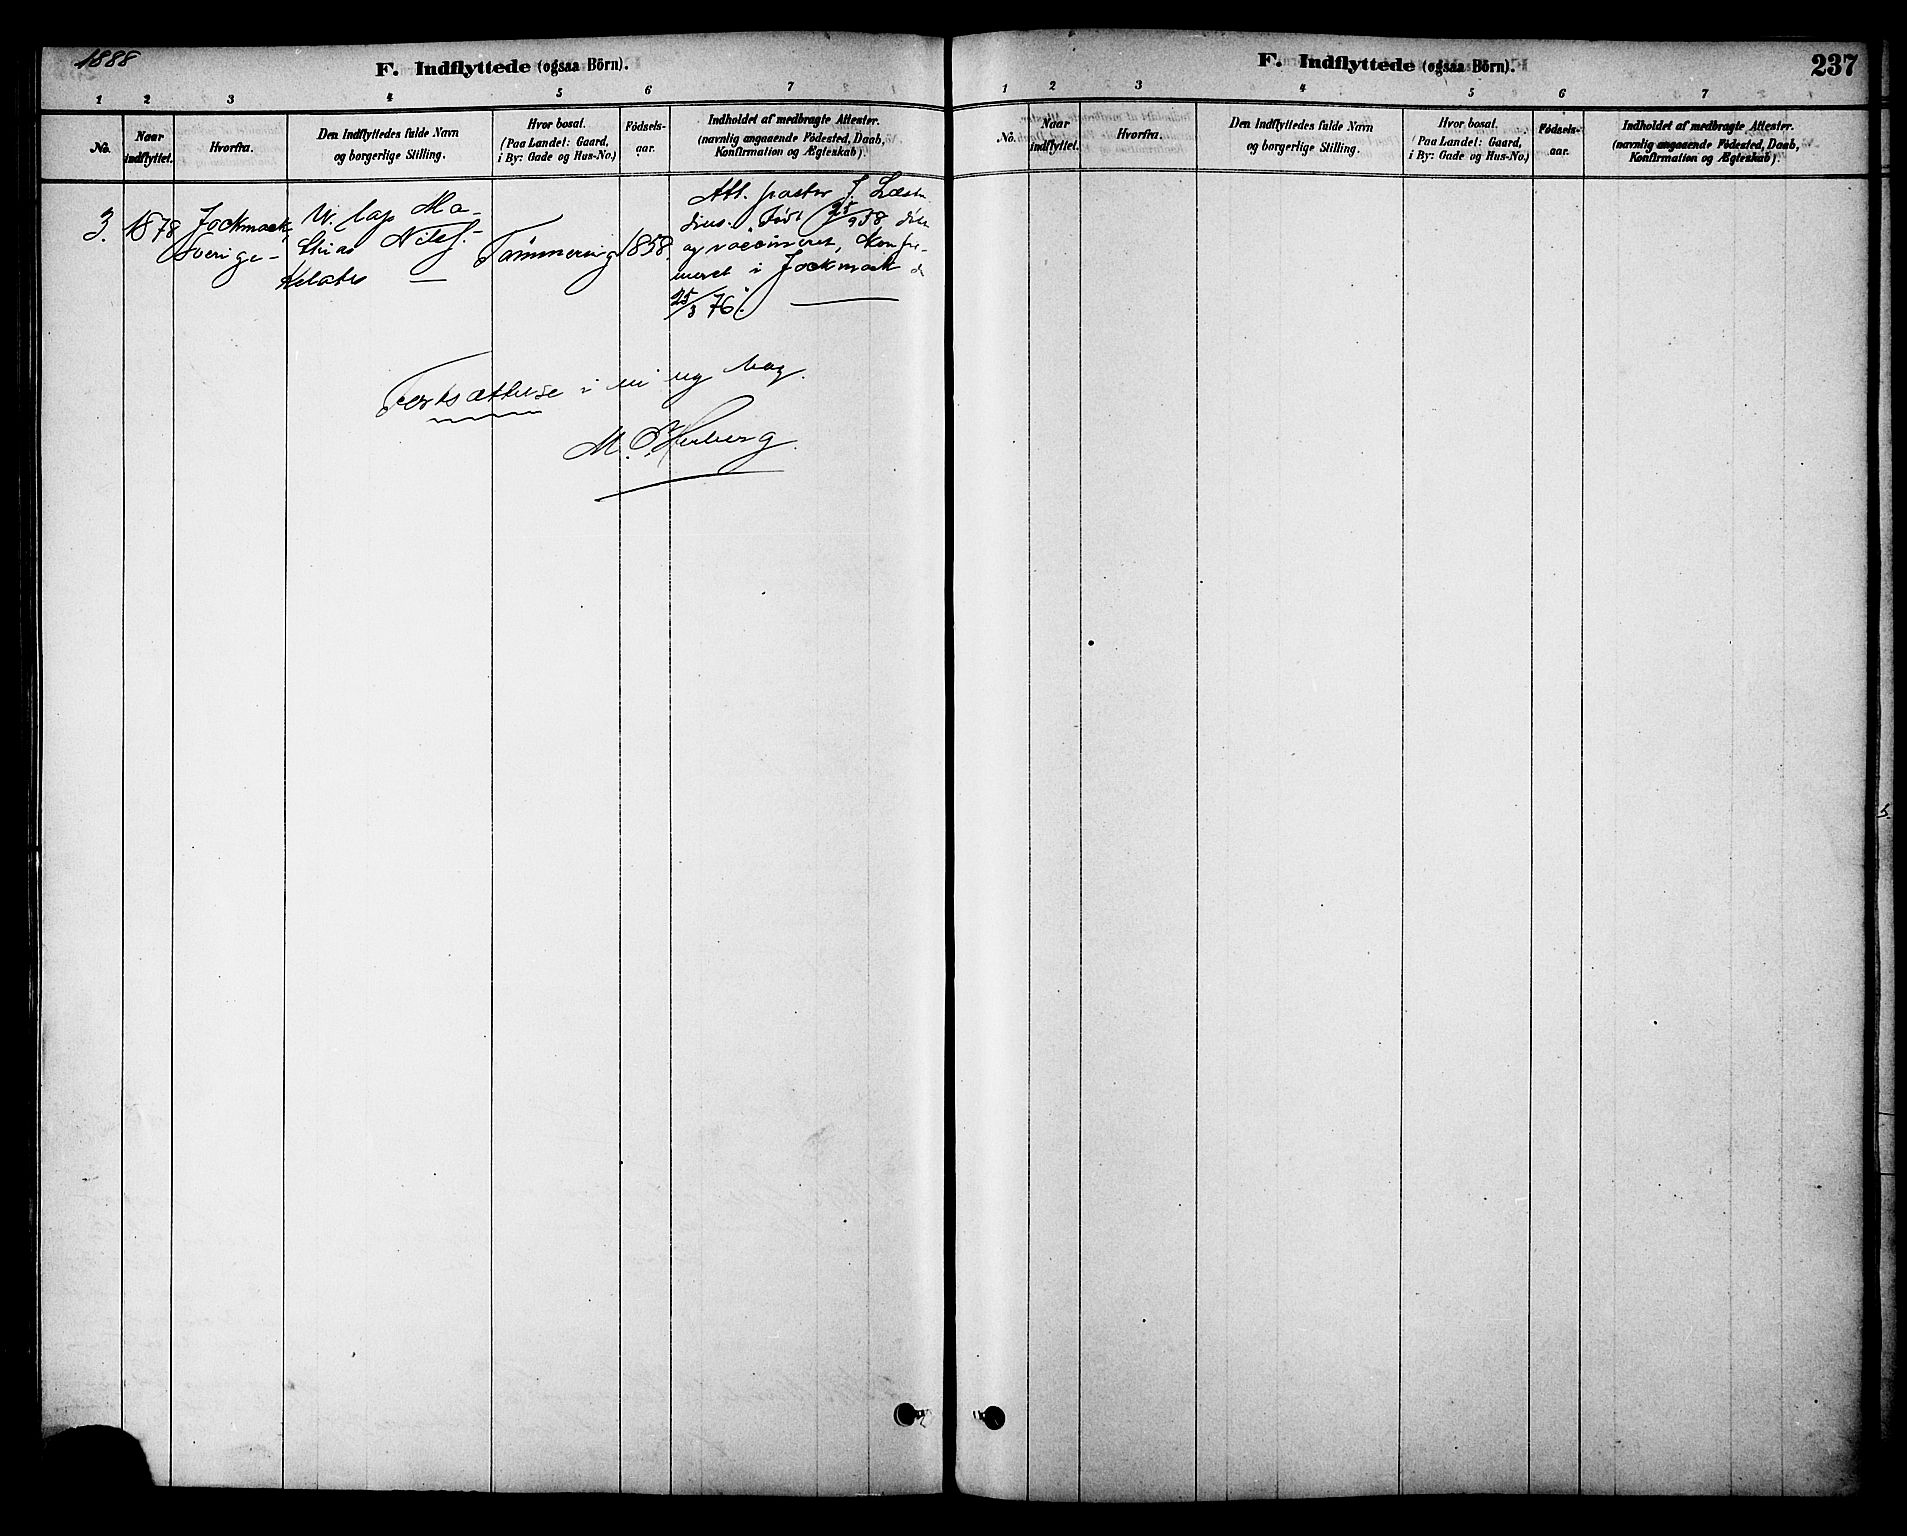 1888
F. Indflyttede (ogsaa Börn).
1 2 3 4 5 6 7
No.
Naar indflyttet.
Hvorfra.
Den Indflyttedes fulde Navn
og borgerlige Stilling.
Hvor bosat.
(Paa Landet: Gaard,
i By: Gade og Hus-No.)
Fødsels-
aar.
Indholdet af medbragte Attester.
(navnlig angaaende Fødested, Daab,
Konfirmation og Ægteskab).
3. 1878 Jockmock,
Sverige-
U. lap Ma-
thias Nilss.
Klates
Tømmering
1858.
Att. pastor J. Læsta
dius. Født 25/9 58 døbt
og vaccineret, Konfir-
meret i Jockmock d
25/3 76.
Fortsættelse i en ny bog.
M. S. Herberg.
F. Indflyttede (ogsaa Börn).
237
1 2 3 4 5 6 7
No.
Naar
indflyttet.
Hvorfra.
Den Indflyttedes fulde Navn
og borgerlige Stilling.
Hvor bosat.
(Paa Landet: Gaard,
i By: Gade og Hus-No.)
Fødsels-
aar.
Indholdet af medbragte Attester.
(navnlig angaaende Fødested, Daab,
Konfirmation og Ægteskab).